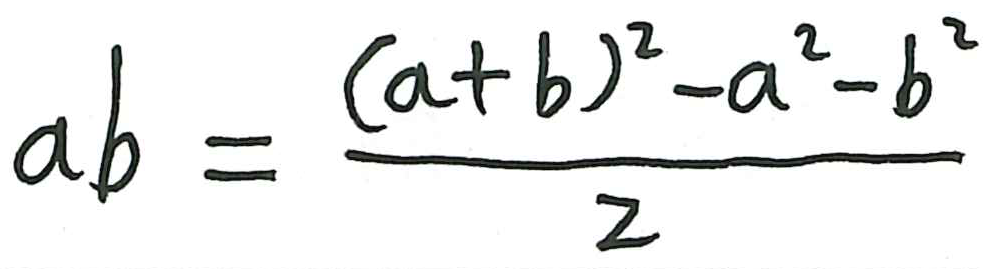 ab = \frac{(a+b)^2 - a^2 - b^2}{2}